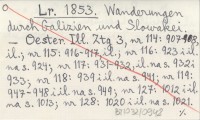 Lr. 1853. Wanderungen
durch Galizien und Slowakei.
— Oester. Ill. Ztg 3, nr 114: 907-
il.; nr 115: 916-917, il.; nr 116: 923 il
na s. 924; nr 117: 931-932, il. na s. 932;
933; nr 118: 939 il na s. 941; nr 119:
947-948 il. na s. 949; nr 127: 1012 il
na s. 1013; nr 128: 1020 il na s. 1021.